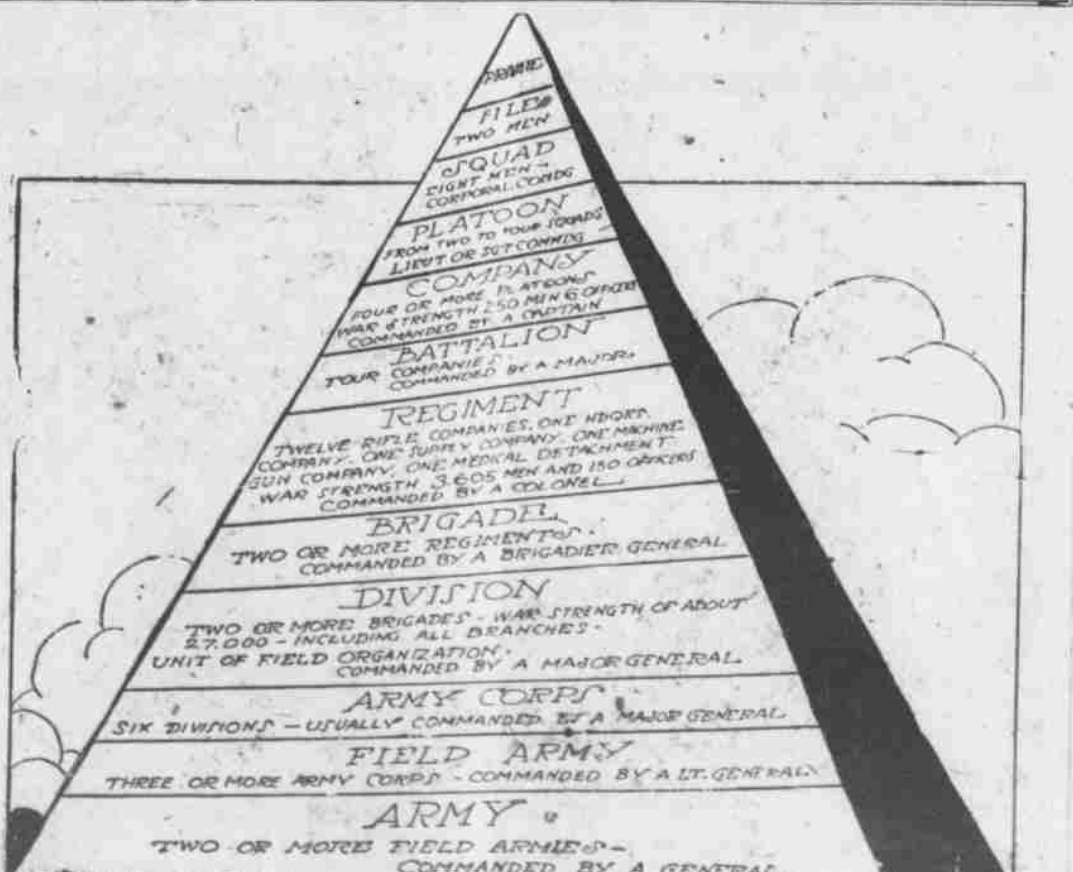 PRIVATE
FILE
TWO MEN
SQUAD
EIGHT MEN -
CORPORAL COMDG
PLATOON
FROM TWO TO FOUR SQUADS
LIEUT OR SGT COMMDG
COMPANY
FOUR OR MORE PLATOONS
WAR STRENGTH 250 MEN 6 OFFICERS
COMMANDED BY A CAPTAIN
BATTALION
FOUR COMPANIES.
COMMANDED BY A MAJOR.
REGIMENT
TWELVE RIFLE COMPANIES, ONE HDQRS.
COMPANY, ONE SUPPLY COMPANY, ONE MACHINE
GUN COMPANY, ONE MEDICAL DETACHMENT
WAR STRENGTH 3.605 MEN AND 150 OFFICERS
COMMANDED BY A COLONEL
BRIGADE
TWO OR MORE REGIMENTS.
COMMANDED BY A BRIGADIER GENERAL
DIVISION
TWO OR MORE BRIGADES - WAR STRENGTH OF ABOUT
27.000 - INCLUDING ALL BRANCHES -
UNIT OF FIELD ORGANIZATION.
COMMANDED BY A MAJOR GENERAL
ARMY CORPS
SIX DIVISIONS - USUALLY COMMANDED BY A MAJOR GENERAL
FIELD ARMY
THREE OR MORE ARMY CORPS - COMMANDED BY A LT. GENERAL
ARMY
TWO OR MORE FIELD ARMIES -
COMMANDED BY A GENERAL